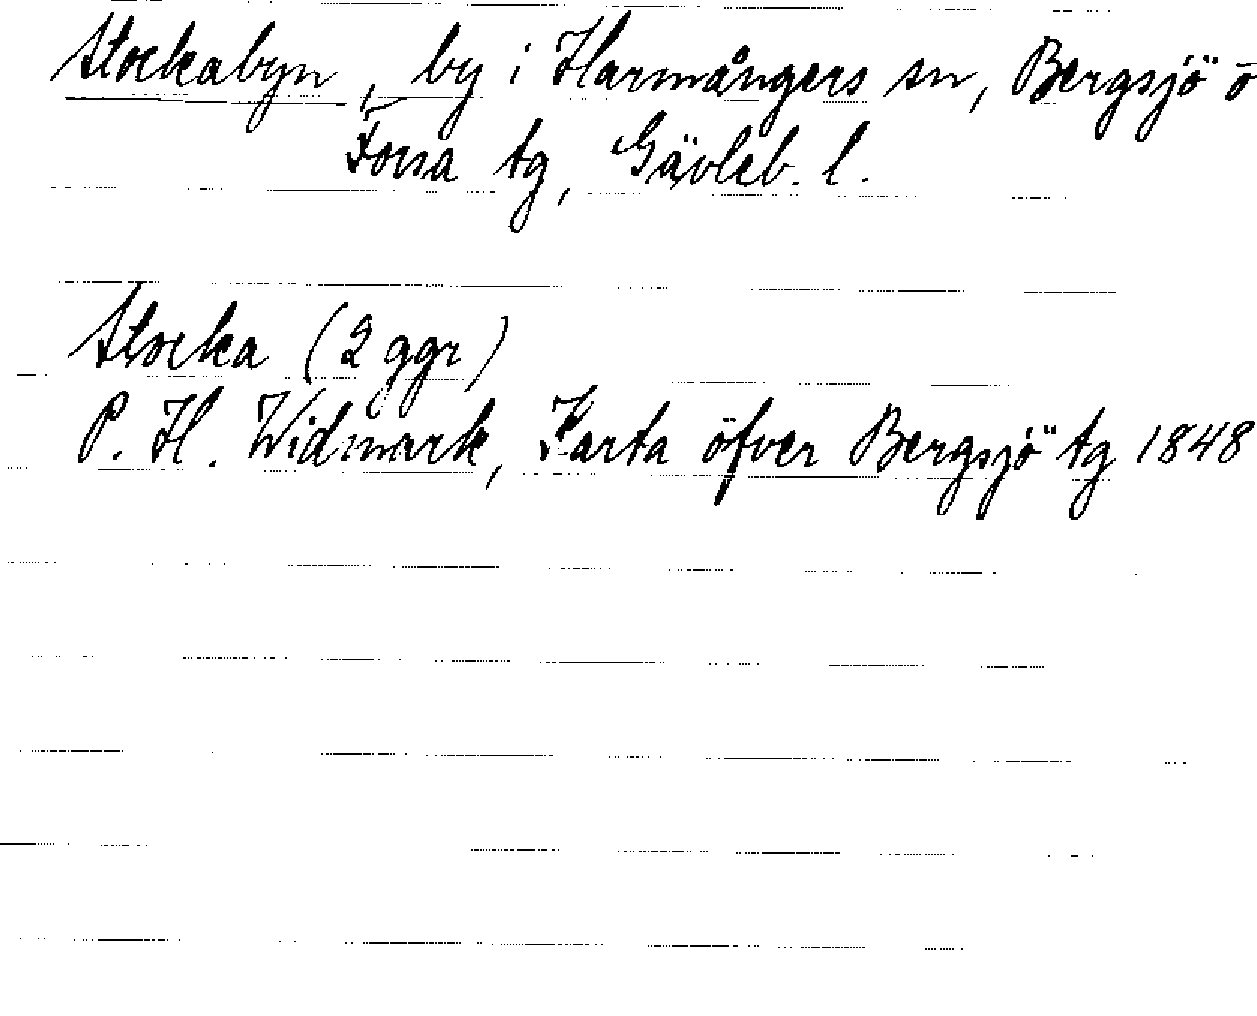 Stockabyn, by i Harmångers sn, Bergsjö o
Forsa tg, Gävleb. l.
Stocka (2 ggr)
P. H. Widmark, Karta öfver Bergsjö tg 1848